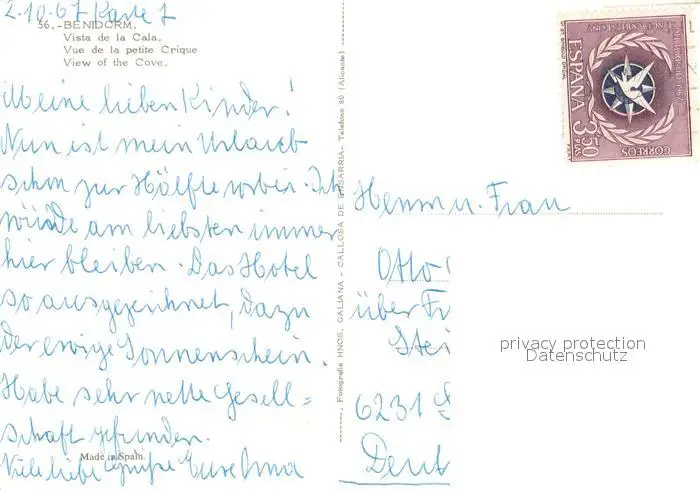 2.10.67 Karte 7
56.-BENIDORM.
Vista de la Cala.
Vue de la petite Crique
View of the Cove.
Meine lieben Kinder!
Nun ist mein Urlaub
schon zur Hälfte vorbei. Ich
würde am liebsten immer
hier bleiben. Das Hotel
so ausgezeichnet, dazu
der ewige Sonnenschein.
Habe sehr nette Gesell=
schaft gefunden.
Viele liebe Grüße Eure Oma
Made in Spain.
Fotografía HNOS. GALIANA - CALLOSA DE ENSARRIA- Telefono 80 (Alicante)
ESPAÑA
3,50
PTAS
CORREOS
Herrn u. Frau
Otto
über Fr
Stei
6231
Deut
privacy protection
Datenschutz